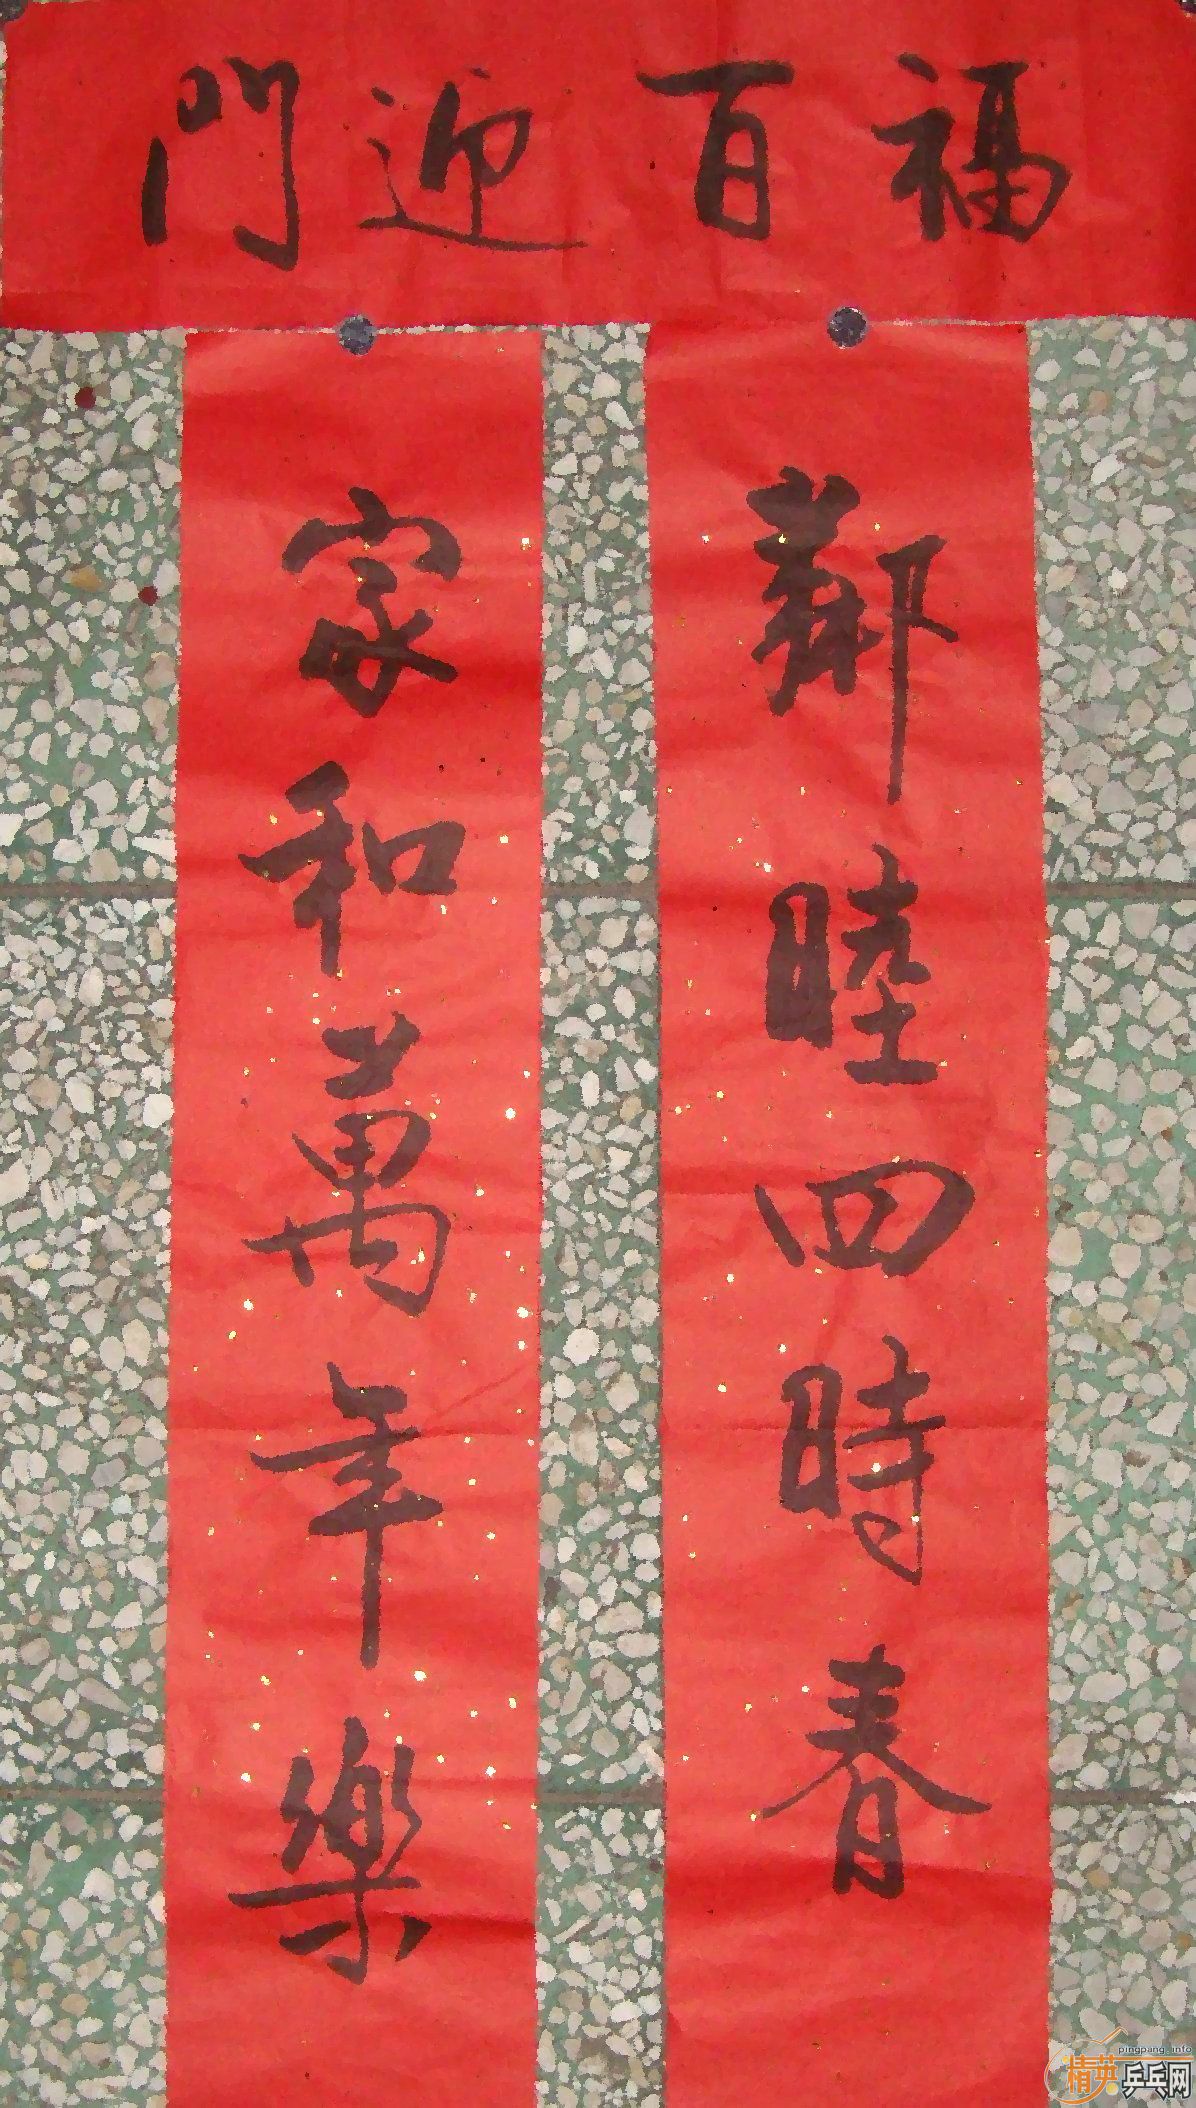 福百迎門
鄰睦四時春
家和萬年樂
pingpang.info
精英乒乓网